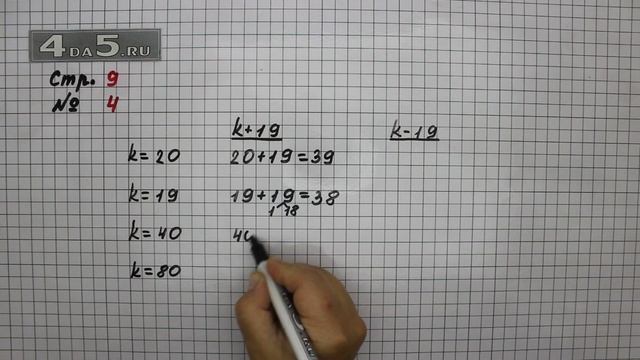 4DA5.RU
Стр. 9
№ 4
k+19 k-19
k=20 20+19=39
k=19 19+19=38
1 18
k=40 40
k=80